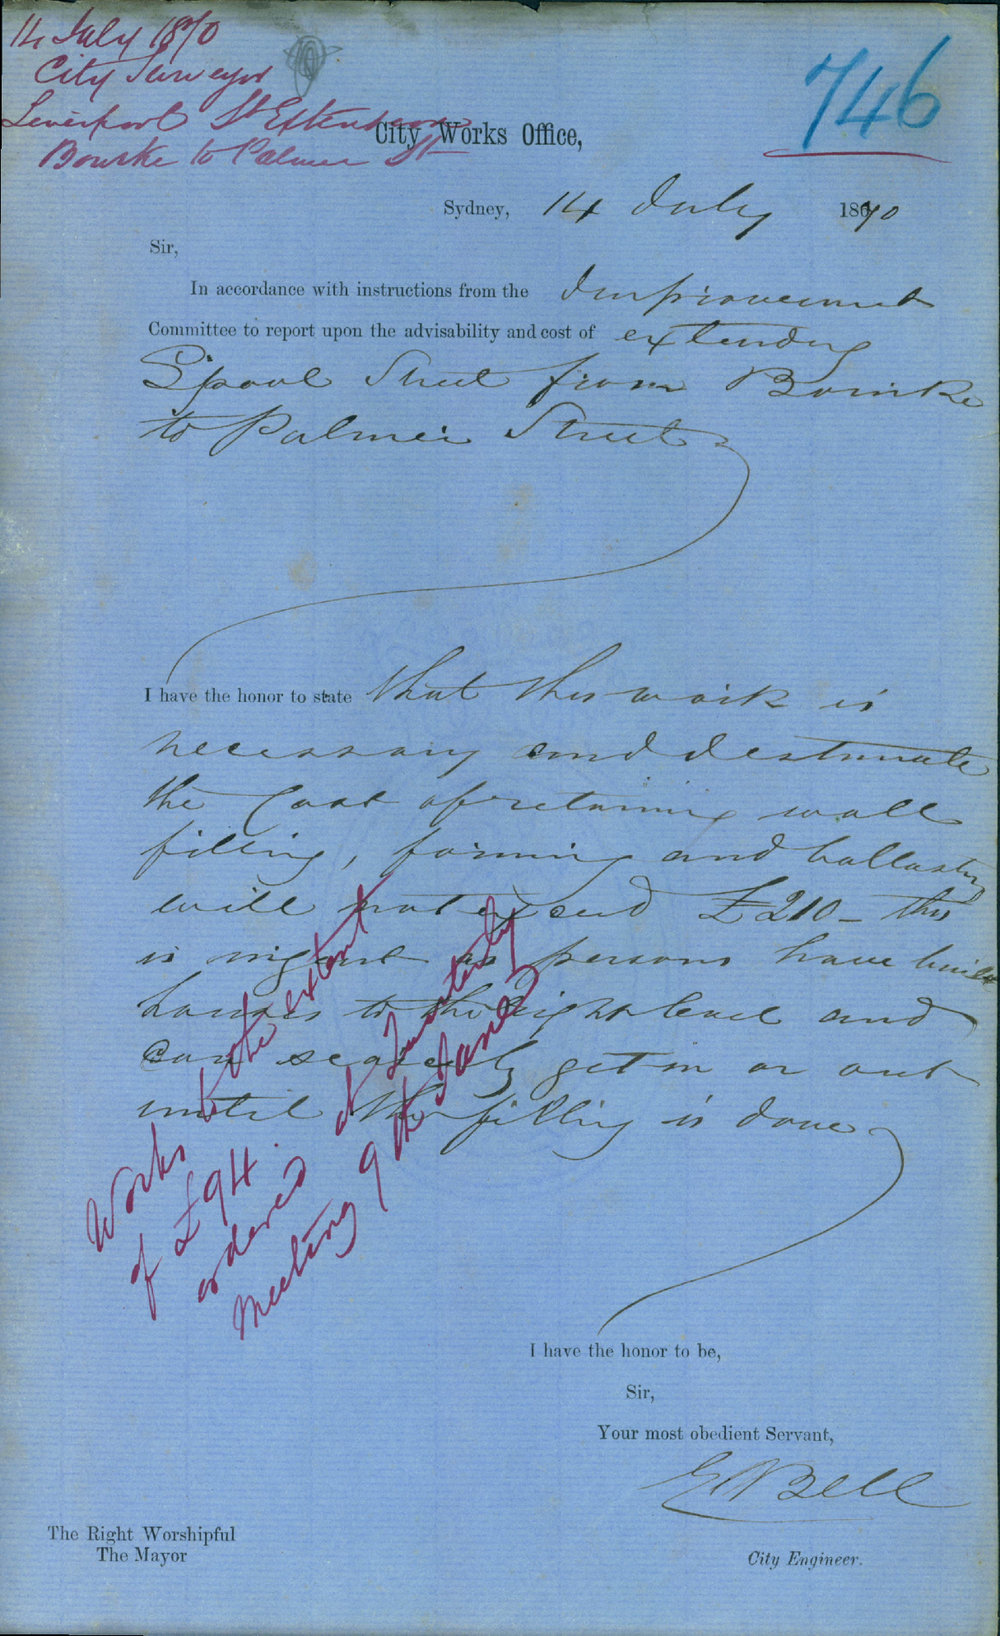 14 July 1870
City Surveyor
Liverpool St Extension
Bourke to Palmer St
746
City Works Office,
Sydney, 14 July 1870
Sir,
In accordance with instructions from the Improvement
Committee to report upon the advisability and cost of extending
L'pool Street from Bourke
to Palmer Street
I have the honor to state that this work is
necessary and I estimate
the Cost of retaining wall
filling, forming and ballasting
will not exceed £210 - this
is urgent as persons have built
houses to the right level and
can scarcely get in or out
until the filling is done
Works to the extent
of £94. ordered
at Quarterly
meeting 9th
I have the honor to be,
Sir,
Your most obedient Servant,
E Bell
The Right Worshipful
The Mayor
City Engineer.